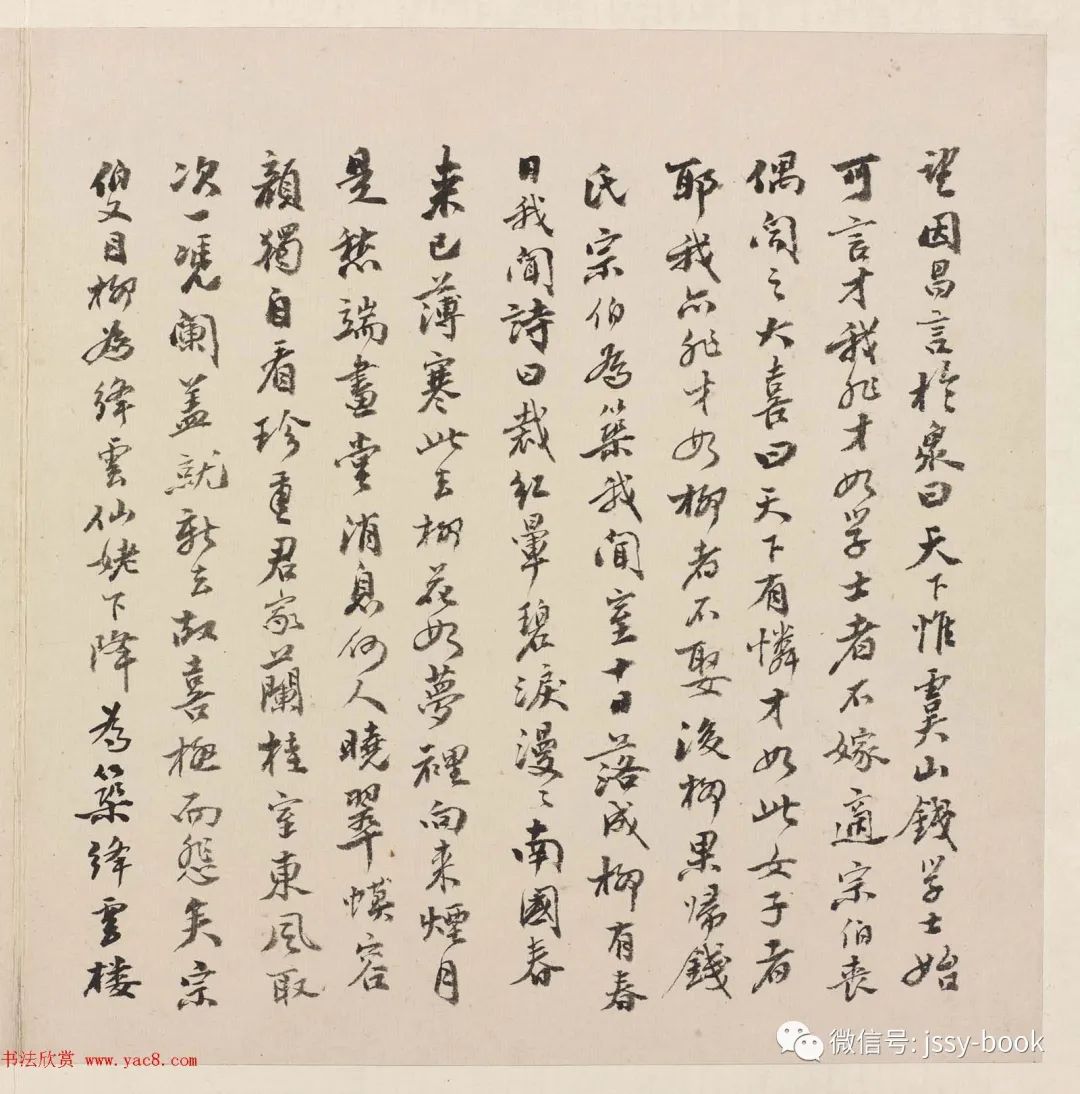 望因昌言於衆曰天下惟虞山錢学士始
可言才我非才如学士者不嫁適宗伯喪
偶闻之大喜曰天下有憐才如此女子者
耶我亦非才如柳者不娶後柳果归錢
氏宗伯為築我聞室十日落成柳有春
日我聞詩曰裁红暈碧淚漫〻南國春
来已薄寒此去柳花如夢裡向来煙月
是愁端畫堂消息何人曉翠幙容
顔獨自看珍重君家蘭桂室東風取
次一凭阑盖就新去故喜極而怨矣宗
伯又目柳為絳雲仙姥下降為築絳雲楼
书法欣赏 www.yac8.com
微信号: jssy-book